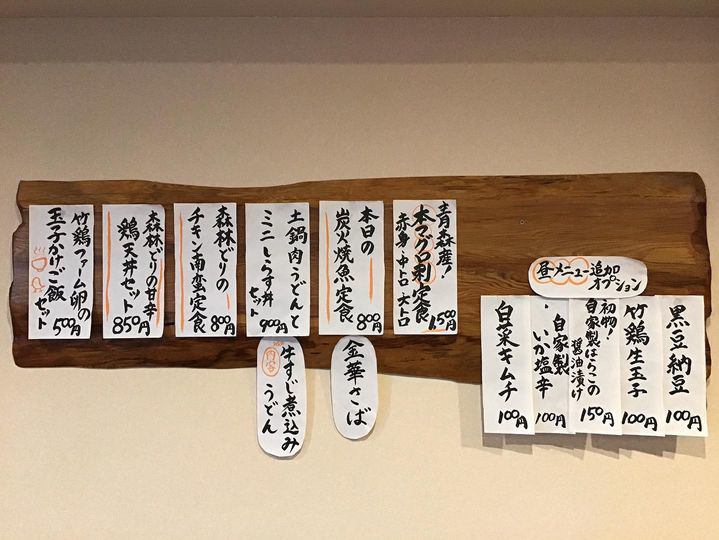 青森産！
本マグロ刺定食
赤身 中トロ 大トロ
1,500円
本日の
炭火焼魚定食
800円
金華さば
土鍋肉うどんと
ミニしらす丼
セット
900円
内容
牛すじ煮込み
うどん
森林どりの
チキン南蛮定食
800円
森林どりの甘辛
鶏天丼セット
850円
竹鶏ファーム卵の
玉子かけご飯
セット
500円
昼メニュー追加
オプション
黒豆納豆
100円
竹鶏生玉子
100円
初物！
自家製はらこの
醤油漬け
150円
自家製
いか塩辛
100円
白菜キムチ
100円